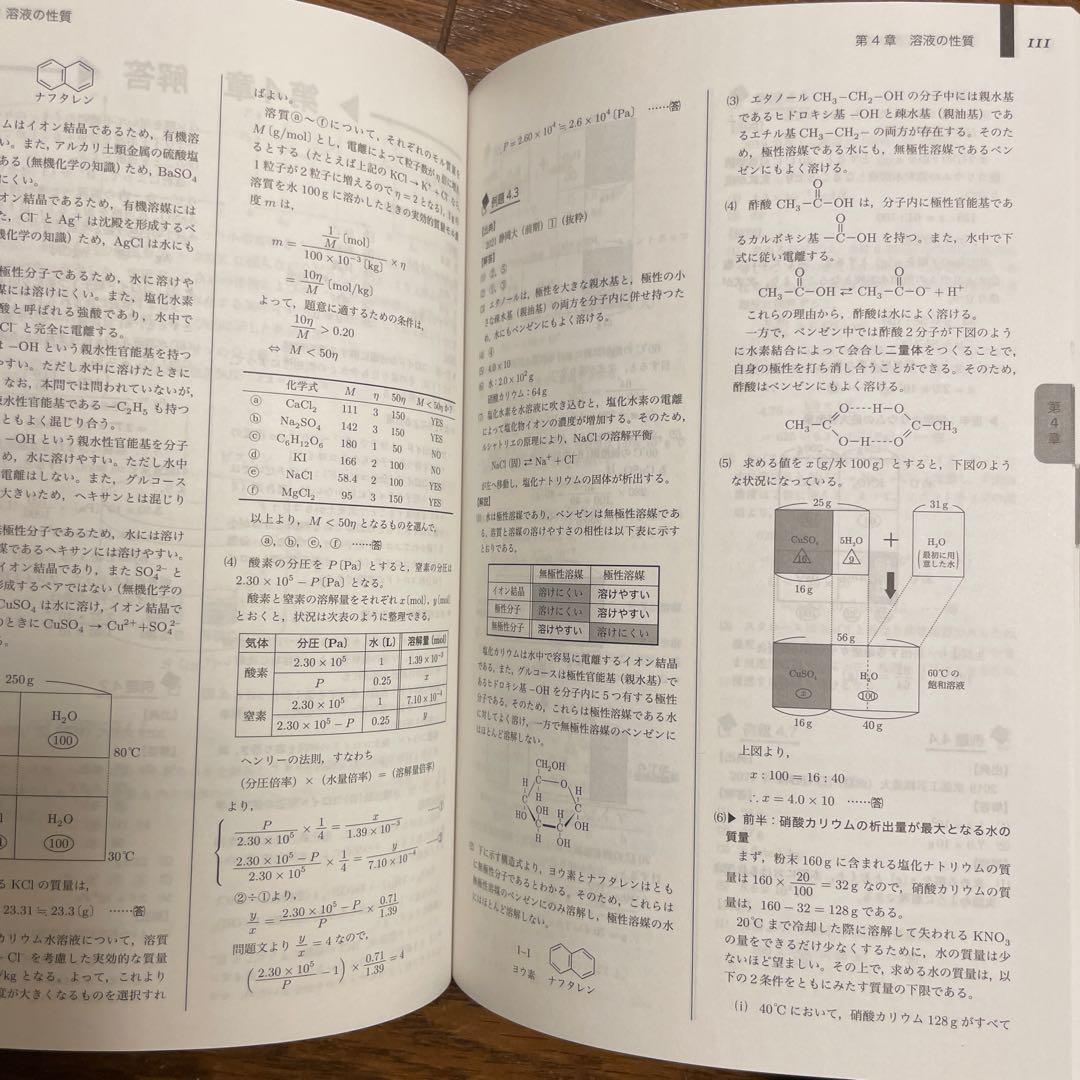 溶液の性質
ナフタレン
ムはイオン結晶であるため,有機溶
い。また,アルカリ土類金属の硫酸塩
ある(無機化学の知識)ため,BaSO4
にくい。
オン結晶であるため,有機溶媒には
た,Cl⁻とAg⁺は沈殿を形成するペ
機化学の知識)ため,AgClは水にも
極性分子であるため,水に溶けや
媒には溶けにくい。また,塩化水素
酸と呼ばれる強酸であり,水中で
Cl⁻と完全に電離する。
は−OHという親水性官能基を持つ
やすい。ただし水中に溶けたときに
なお,本問では問われていないが,
水性官能基である−C2H5も持つ
ともよく混じり合う。
−OHという親水性官能基を分子
め,水に溶けやすい。ただし水中
電離はしない。また,グルコース
大きいため,ヘキサンとは混じり
極性分子であるため,水には溶け
媒であるヘキサンには溶けやすい。
イオン結晶であり,またSO4²⁻と
形成するペアではない(無機化学の
CuSO4は水に溶け,イオン結晶で
のときにCuSO4→Cu²⁺+SO4²⁻
る。
250g
H2O
100
80℃
H2O
100
30℃
るKClの質量は,
23.31≒23.3〔g〕 ……答
カリウム水溶液について,溶質
Cl⁻を考慮した実効的な質量
/kgとなる。よって,これより
度が大きくなるものを選択すれ
ばよい。
溶質ⓐ〜ⓕについて,それぞれのモル質量を
M〔g/mol〕とし,電離によって粒子数が
るとする(たとえば上記のKCl→K⁺+Cl⁻なら,
1粒子が2粒子に増えるのでη=2となる)。
溶質を水100gに溶かしたときの実効的質量モル濃
度mは,
m=(1/M〔mol〕)/(100×10⁻³〔kg〕)×η
=10η/M〔mol/kg〕
よって,題意に適するための条件は,
10η/M>0.20
⇔ M<50η
化学式 M η 50η M<50ηか?
ⓐ CaCl2 111 3 150 YES
ⓑ Na2SO4 142 3 150 YES
ⓒ C6H12O6 180 1 50 NO
ⓓ KI 166 2 100 NO
ⓔ NaCl 58.4 2 100 YES
ⓕ MgCl2 95 3 150 YES
以上より,M<50ηとなるものを選んで,
ⓐ,ⓑ,ⓔ,ⓕ ……答
(4) 酸素の分圧をP〔Pa〕とすると,窒素の分圧は
2.30×10⁵−P〔Pa〕となる。
酸素と窒素の溶解量をそれぞれx〔mol〕,y〔mol〕
とおくと,状況は次表のように整理できる。
気体 分圧〔Pa〕 水〔L〕 溶解量〔mol〕
酸素 2.30×10⁵ 1 1.39×10⁻³
P 0.25 x
窒素 2.30×10⁵ 1 7.10×10⁻⁴
2.30×10⁵−P 0.25 y
ヘンリーの法則,すなわち
(分圧倍率)×(水量倍率)=(溶解量倍率)
より,
P/(2.30×10⁵)×1/4=x/(1.39×10⁻³) …①
(2.30×10⁵−P)/(2.30×10⁵)×1/4=y/(7.10×10⁻⁴) …②
②÷①より,
y/x=(2.30×10⁵−P)/P×0.71/1.39
問題文よりy/x=4なので,
(2.30×10⁵/P−1)×0.71/1.39=4
∴P=2.60×10⁴≒2.6×10⁴〔Pa〕 ……答
例題4.3
【出典】
2021 静岡大(前期)1(抜粋)
【解答】
(1) ②,⑤
(2) ①,③
(3) エタノールは,極性を大きな親水基と,極性の小
さな疎水基(親油基)の両方を分子内に併せ持つた
め,水にもベンゼンにもよく溶ける。
(4) ④
(5) 4.0×10
(6) 水:2.0×10²g
硝酸カリウム:64g
(7) 塩化水素を水溶液に吹き込むと,塩化水素の電離
によって塩化物イオンの濃度が増加する。そのため,
ルシャトリエの原理により,NaClの溶解平衡
NaCl(固)⇄Na⁺+Cl⁻
が左へ移動し,塩化ナトリウムの固体が析出する。
【解説】
(1) 水は極性溶媒であり,ベンゼンは無極性溶媒であ
る。溶質と溶媒の溶けやすさの相性は以下表に示す
とおりである。
無極性溶媒 極性溶媒
イオン結晶 溶けにくい 溶けやすい
極性分子 溶けにくい 溶けやすい
無極性分子 溶けやすい 溶けにくい
塩化カリウムは水中で容易に電離するイオン結晶
である。また,グルコースは極性官能基(親水基)で
あるヒドロキシ基−OHを分子内に5つ有する極性
分子である。そのため,これらは極性溶媒である水
に対してよく溶け,一方で無極性溶媒のベンゼンに
はほとんど溶解しない。
CH2OH
H O H
H
OH H
HO OH
H OH
(2) 下に示す構造式より,ヨウ素とナフタレンはとも
に無極性分子であるとわかる。そのため,これらは
無極性溶媒のベンゼンにのみ溶解し,極性溶媒の水
にはほとんど溶解しない。
I−I
ヨウ素 ナフタレン
第4章 溶液の性質 111
(3) エタノールCH3−CH2−OHの分子中には親水基
であるヒドロキシ基−OHと疎水基(親油基)である
エチル基CH3−CH2−の両方が存在する。そのた
め,極性溶媒である水にも,無極性溶媒であるベン
ゼンにもよく溶ける。
(4) 酢酸CH3−C(=O)−OHは,分子内に極性官能基であ
るカルボキシ基−C(=O)−OHを持つ。また,水中で下
式に従い電離する。
CH3−C(=O)−OH⇄CH3−C(=O)−O⁻+H⁺
これらの理由から,酢酸は水によく溶ける。
一方で,ベンゼン中では酢酸2分子が下図のよう
に水素結合によって会合し二量体をつくることで,
自身の極性を打ち消し合うことができる。そのため,
酢酸はベンゼンにもよく溶ける。
O----H−O
CH3−C C−CH3
O−H----O
(5) 求める値をx〔g/水100g〕とすると,下図のよう
な状況になっている。
25g 31g
CuSO4 16 5H2O 9 + H2O (最初に用意した水)
16g
56g
CuSO4 x H2O 100 60℃の飽和溶液
16g 40g
上図より,
x:100=16:40
∴x=4.0×10 ……答
(6)▶ 前半:硝酸カリウムの析出量が最大となる水の
質量
まず,粉末160gに含まれる塩化ナトリウムの質
量は160×20/100=32gなので,硝酸カリウムの質
量は,160−32=128gである。
20℃まで冷却した際に溶解して失われるKNO3
の量をできるだけ少なくするために,水の質量は少
ないほど望ましい。その上で,求める水の質量は,以
下の2条件をともにみたす質量の下限である。
(i) 40℃において,硝酸カリウム128gがすべて
第4章